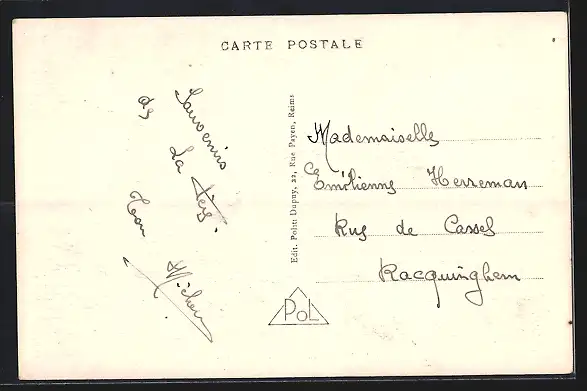 CARTE POSTALE
Souvenirs
de
La Fère.
Ton Michel
Edit. Polnt Dupuy, 22, Rue Payen, Reims
Mademoiselle
Emilienne Herreman
Rue de Cassel
Racquinghem
POL